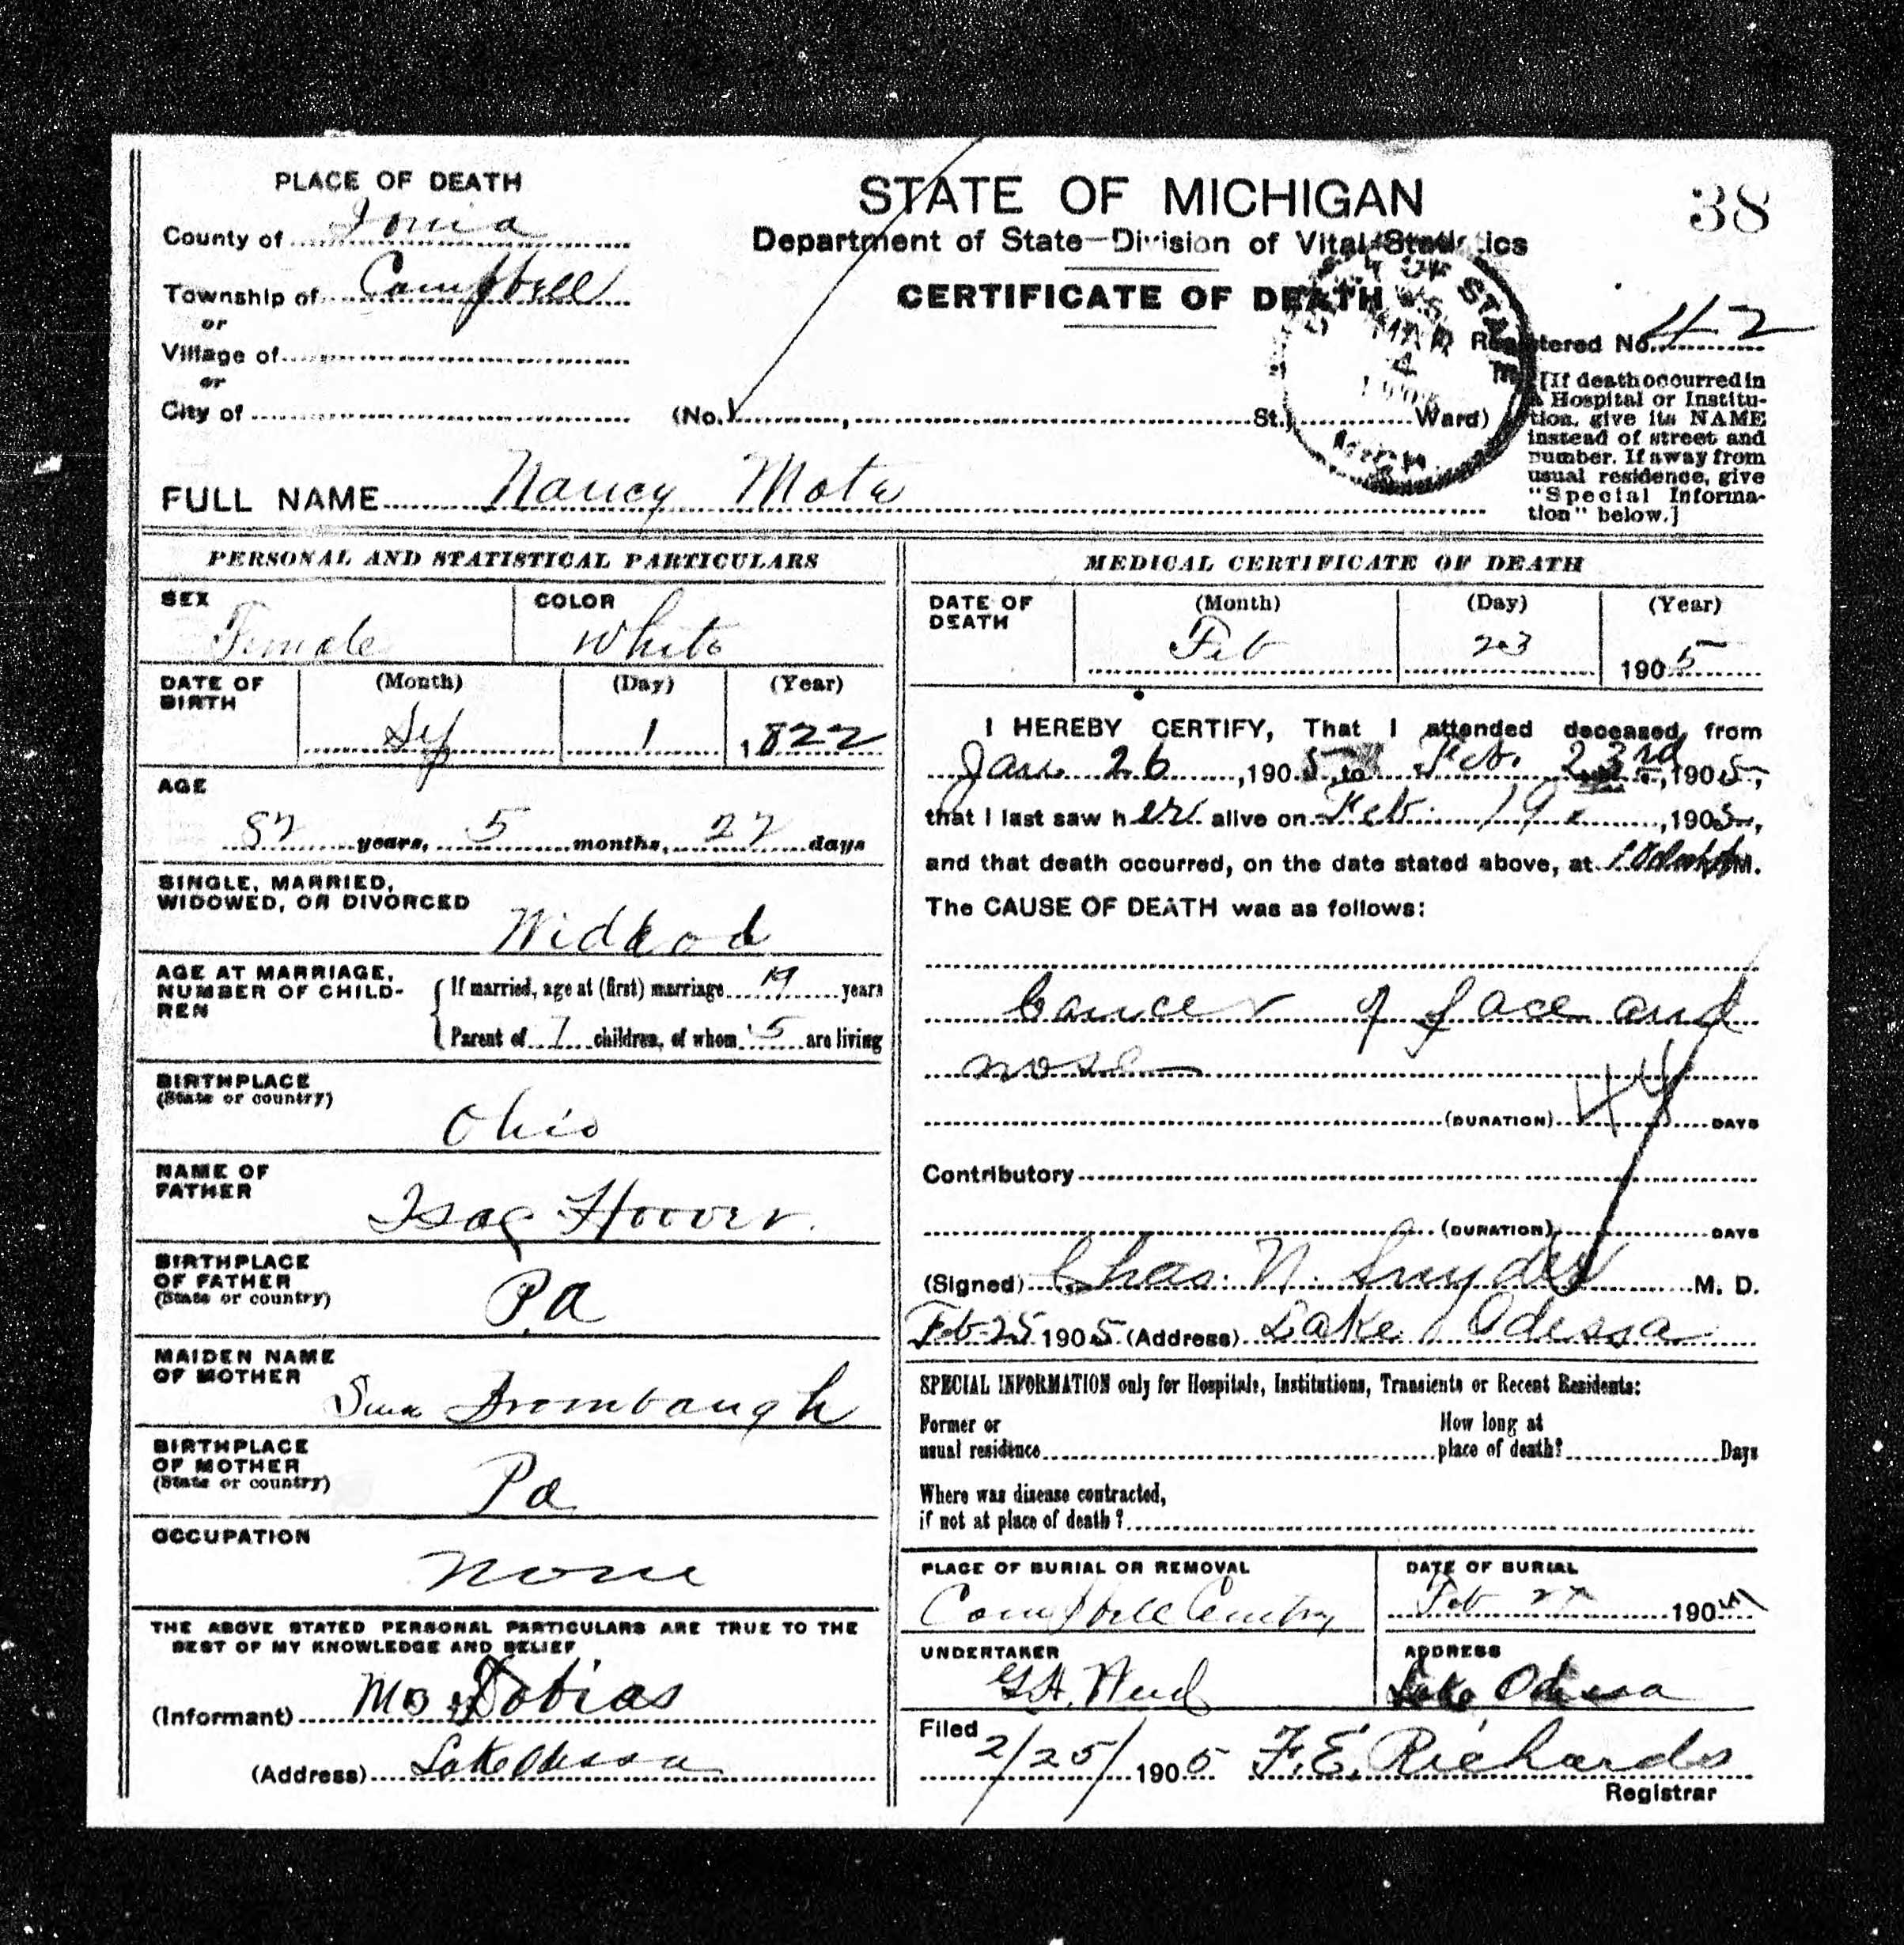 38
PLACE OF DEATH
County of Ionia
Township of Campbell
or
Village of
or
City of
STATE OF MICHIGAN
Department of State—Division of Vital Statistics
CERTIFICATE OF DEATH
MAR 4
MICH.
Registered No. 42
(No. , St., Ward)
[If death occurred in
a Hospital or Institu-
tion, give its NAME
instead of street and
number. If away from
usual residence, give
"Special Informa-
tion" below.]
FULL NAME Nancy Mote
PERSONAL AND STATISTICAL PARTICULARS
SEX Female
COLOR White
DATE OF BIRTH (Month) (Day) (Year)
Sep 1 1822
AGE
82 years, 5 months, 22 days
SINGLE, MARRIED,
WIDOWED, OR DIVORCED
AGE AT MARRIAGE,
NUMBER OF CHILD-
REN
If married, age at (first) marriage 19 years
Parent of 7 children, of whom 5 are living
BIRTHPLACE
(State or country)
Ohio
NAME OF
FATHER
Isac Hoover.
BIRTHPLACE
OF FATHER
(State or country)
P.a
MAIDEN NAME
OF MOTHER
BIRTHPLACE
OF MOTHER
(State or country)
Pa
OCCUPATION
None
THE ABOVE STATED PERSONAL PARTICULARS ARE TRUE TO THE
BEST OF MY KNOWLEDGE AND BELIEF
(Informant) Tobias
(Address) Lake Odessa
MEDICAL CERTIFICATE OF DEATH
DATE OF DEATH (Month) (Day) (Year)
Feb 23 1905
I HEREBY CERTIFY, That I attended deceased from
Jan. 26, 1905, to Feb. 23rd, 1905,
that I last saw her alive on Feb. 19, 1905,
and that death occurred, on the date stated above, at M.
The CAUSE OF DEATH was as follows:
Cancer of face and
nose
(DURATION) DAYS
Contributory
(DURATION) DAYS
(Signed) Chas. N. Snyder M. D.
Feb-25 1905 (Address) Lake Odessa
SPECIAL INFORMATION only for Hospitals, Institutions, Transients or Recent Residents:
Former or
usual residence
How long at
place of death? Days
Where was disease contracted,
if not at place of death?
PLACE OF BURIAL OR REMOVAL
Campbell
DATE OF BURIAL
Feb 190
UNDERTAKER
ADDRESS
Lake Odessa
Filed 2/25/1905 F. E. Richards
Registrar